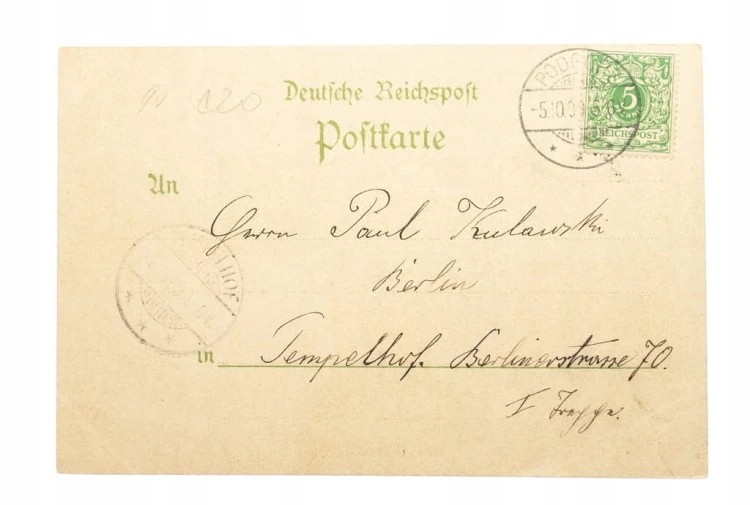 120
Deutsche Reichspost
Postkarte
5
REICHSPOST
-5.10.99
An
Herrn Paul Kulawski
Berlin
in Tempelhof. Berlinerstrasse 70.
I Treppe.